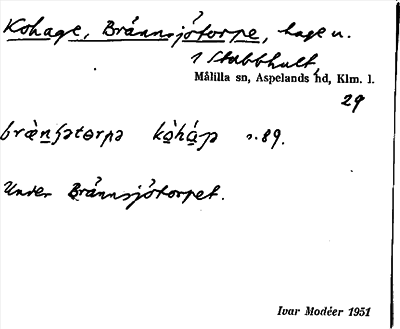 Kohage, Brånnsjötorpe, hage u.
1 Stabbhult,
Målilla sn, Aspelands hd, Klm. l.
29
s. 89.
Under Brånnsjötorpet.
Ivar Modéer 1951